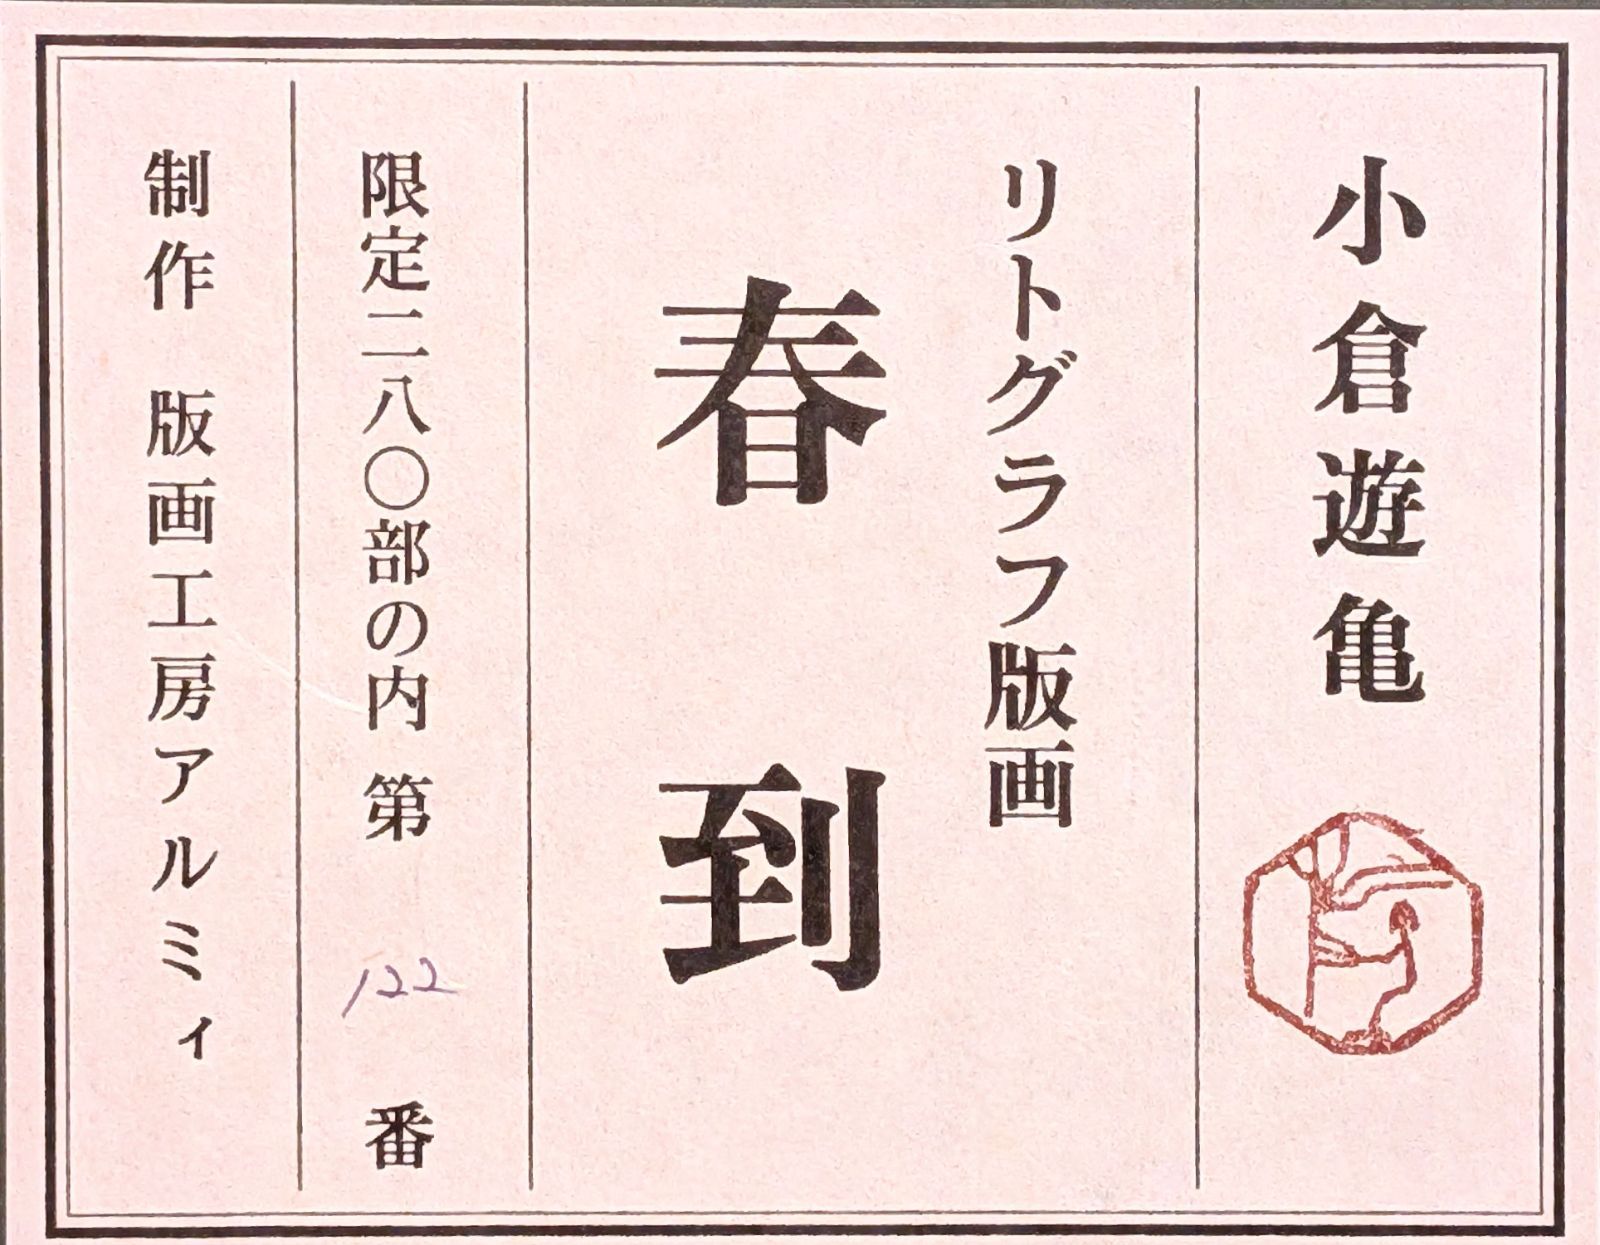 小倉遊亀
リトグラフ版画
春到
限定二八〇部の内 第 122 番
制作 版画工房アルミィ